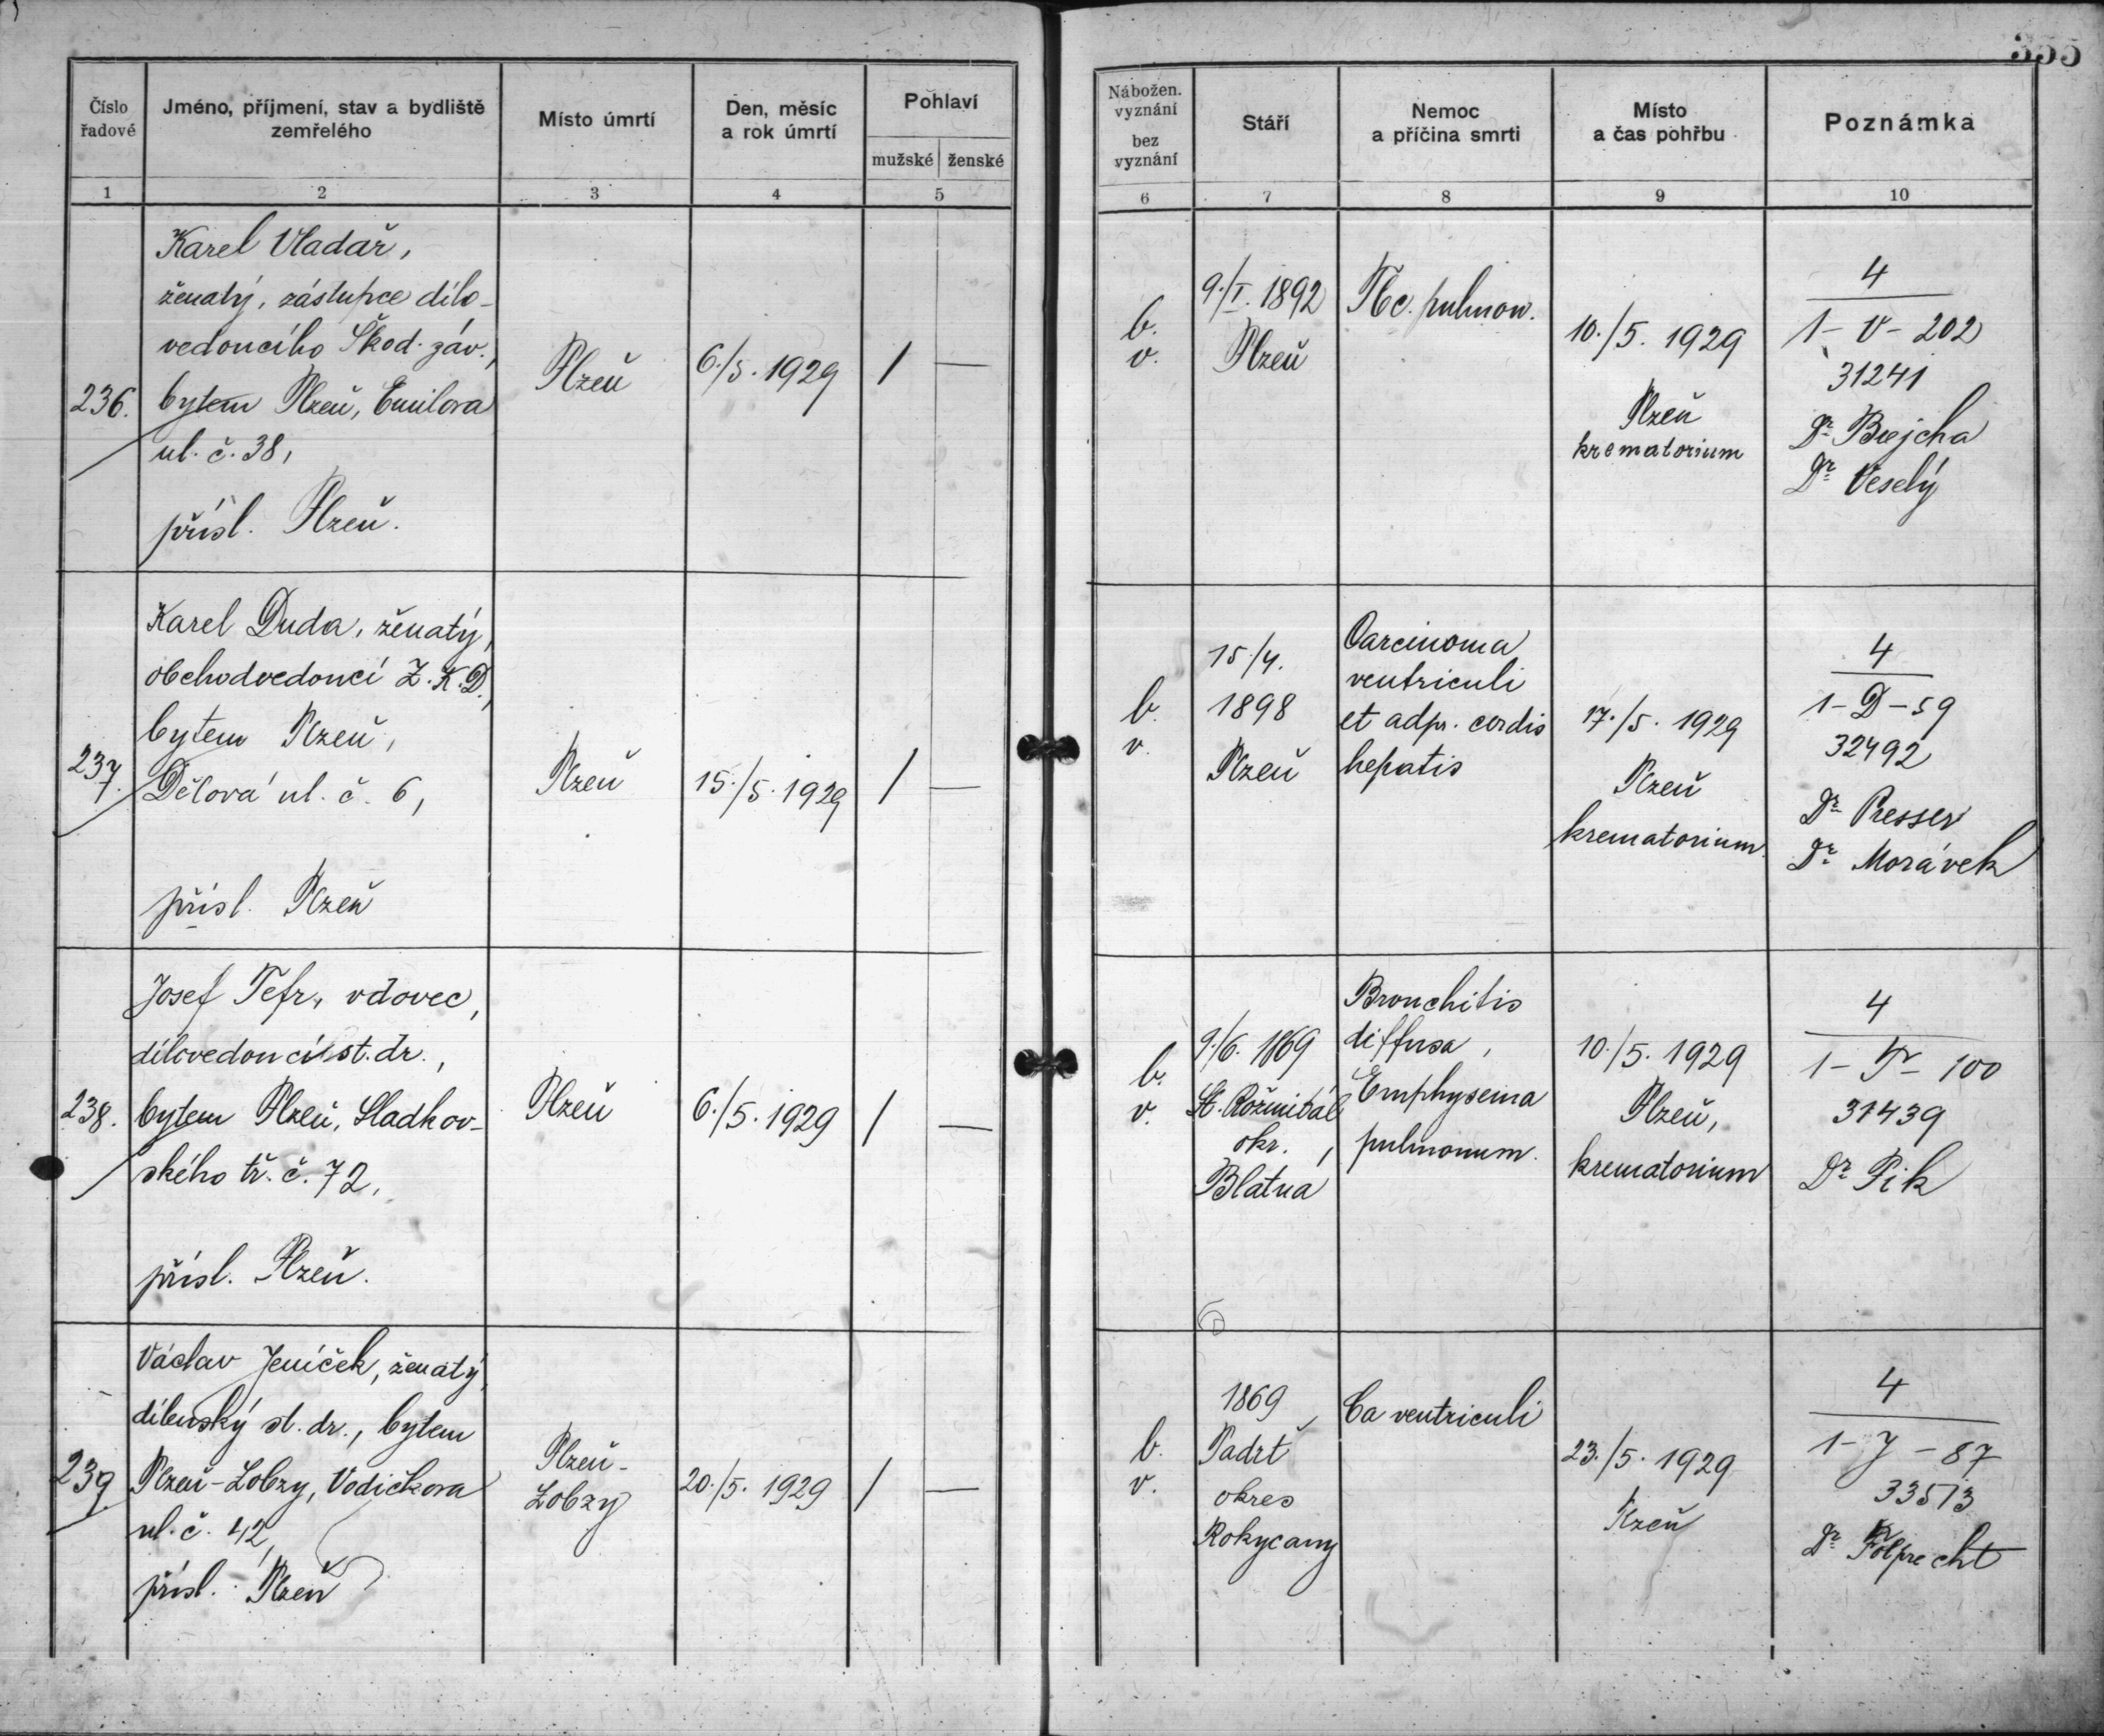 355
Číslo
řadové
Jméno, příjmení, stav a bydliště
zemřelého
Místo úmrtí
Den, měsíc
a rok úmrtí
Pohlaví
mužské
ženské
Nábožen.
vyznání
bez
vyznání
Stáří
Nemoc
a příčina smrti
Místo
a čas pohřbu
Poznámka
1
2
3
4
5
6
7
8
9
10
236.
Karel Vladař,
ženatý, zástupce dílo-
vedoucího Škod. záv.,
bytem Plzeň, Emilova
ul. č. 38,
přísl. Plzeň.
Plzeň
6./5. 1929
/ —
b.
v.
9./I. 1892
Plzeň
Tbc. pulmon.
10./5. 1929
Plzeň
krematorium
4
1 - V - 202
31241
Dr Brejcha
Dr Veselý
237.
Karel Duda, ženatý,
obchodvedoucí Z.K.D.,
bytem Plzeň,
Dělová ul. č. 6,
přísl. Plzeň
Plzeň
15./5. 1929
/ —
b.
v.
15./4.
1898
Plzeň
Carcinoma
ventriculi
et adpr. cordis
hepatis
17./5. 1929
Plzeň
krematorium.
4
1 - D - 59
32492
Dr Presser
Dr Morávek
238.
Josef Tefr, vdovec,
dílovedoucí st. dr.,
bytem Plzeň, Sladkov-
ského tř. č. 72,
přísl. Plzeň.
Plzeň
6./5. 1929
/ —
b.
v.
9./6. 1869
St. Rožmitál
okr.,
Blatná
Bronchitis
diffusa,
Emphysema
pulmonum.
10./5. 1929
Plzeň,
krematorium
4
1 - T - 100
31439
Dr Pik
239
Václav Jeníček, ženatý,
dílenský st. dr., bytem
Plzeň-Lobzy, Vodičkova
ul. č. 42,
přísl. Plzeň
Plzeň-
Lobzy
20./5. 1929
/ —
b.
v.
1869
Padrť
okres
Rokycany
Ca ventriculi
23./5. 1929
Plzeň
4
1 - J - 87
33513
Dr